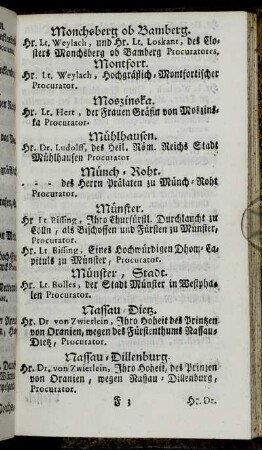 Monchsberg ob Bamberg.
Hr. Lt. Weylach, und Hr. Lt. Loskant, des Clo-
sters Monchsberg ob Bamberg Procuratores.
Montfort.
Hr. Lt. Weylach, Hochgräflich-Montfortischer
Procurator.
Moszinska.
Hr. Lt. Hert, der Frauen Gräfin von Moszins-
ka Procurator.
Mühlhausen.
Hr. Dr. Ludolff, des Heil. Röm. Reichs Stadt
Mühlhausen Procurator
Münch-Roht.
- - - des Herrn Prälaten zu Münch-Roht
Procurator.
Münster.
Hr. Lt. Bissing, Ihro Churfürstl. Durchlaucht zu
Cölln, als Bischoffen und Fürsten zu Münster,
Procurator.
Hr. Lt. Bissing, Eines Hochwürdigen Dhom-Ca-
pituls zu Münster, Procurator.
Münster, Stadt.
Hr. Lt. Bolles, der Stadt Münster in Westpha-
len Procurator.
Nassau-Dietz.
Hr. Dr. von Zwierlein, Ihro Hoheit des Printzen
von Oranien, wegen des Fürstenthums Nassau-
Dietz, Procurator.
Nassau-Dillenburg.
Hr. Dr. von Zwierlein, Ihro Hoheit, des Prinzen
von Oranien, wegen Naßau-Dillenburg,
Procurator.
F 3 Hr. Dr.